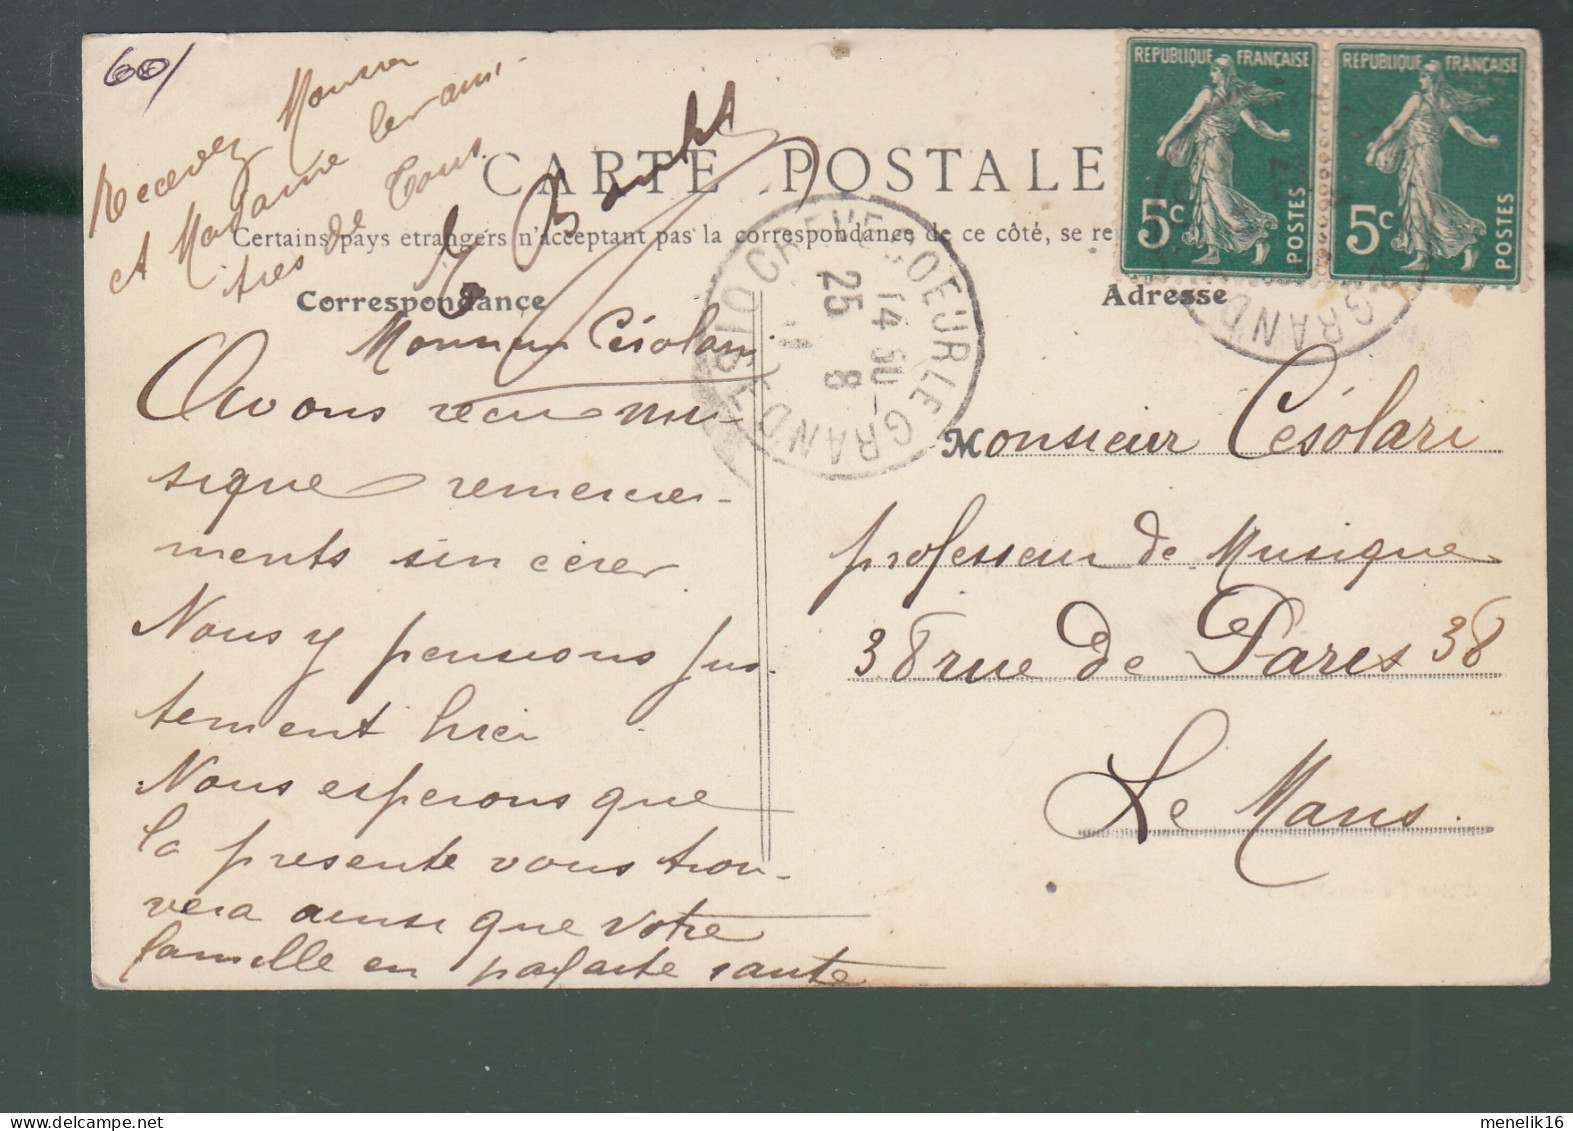 60/
Recevez Monsieur
et Madame les ami-
tiés de Tous
CARTE POSTALE
Certains pays etrangers n'acceptant pas la correspondance de ce côté, se re
Correspondance
Adresse
REPUBLIQUE FRANÇAISE
5c POSTES
REPUBLIQUE FRANÇAISE
5c POSTES
CREVECOEUR LE GRAND OISE
14 30
25 8
11
Monsieur Césolari
Avons recu mu
sique remercie-
ments sincères
Nous y pensions jus-
tement hier
Nous esperons que
la presente vous trou-
vera ainsi que votre
famille en parfaite santé
Monsieur Césolari
professeur de Musique
38 rue de Paris 38
Le Mans.
menelik16